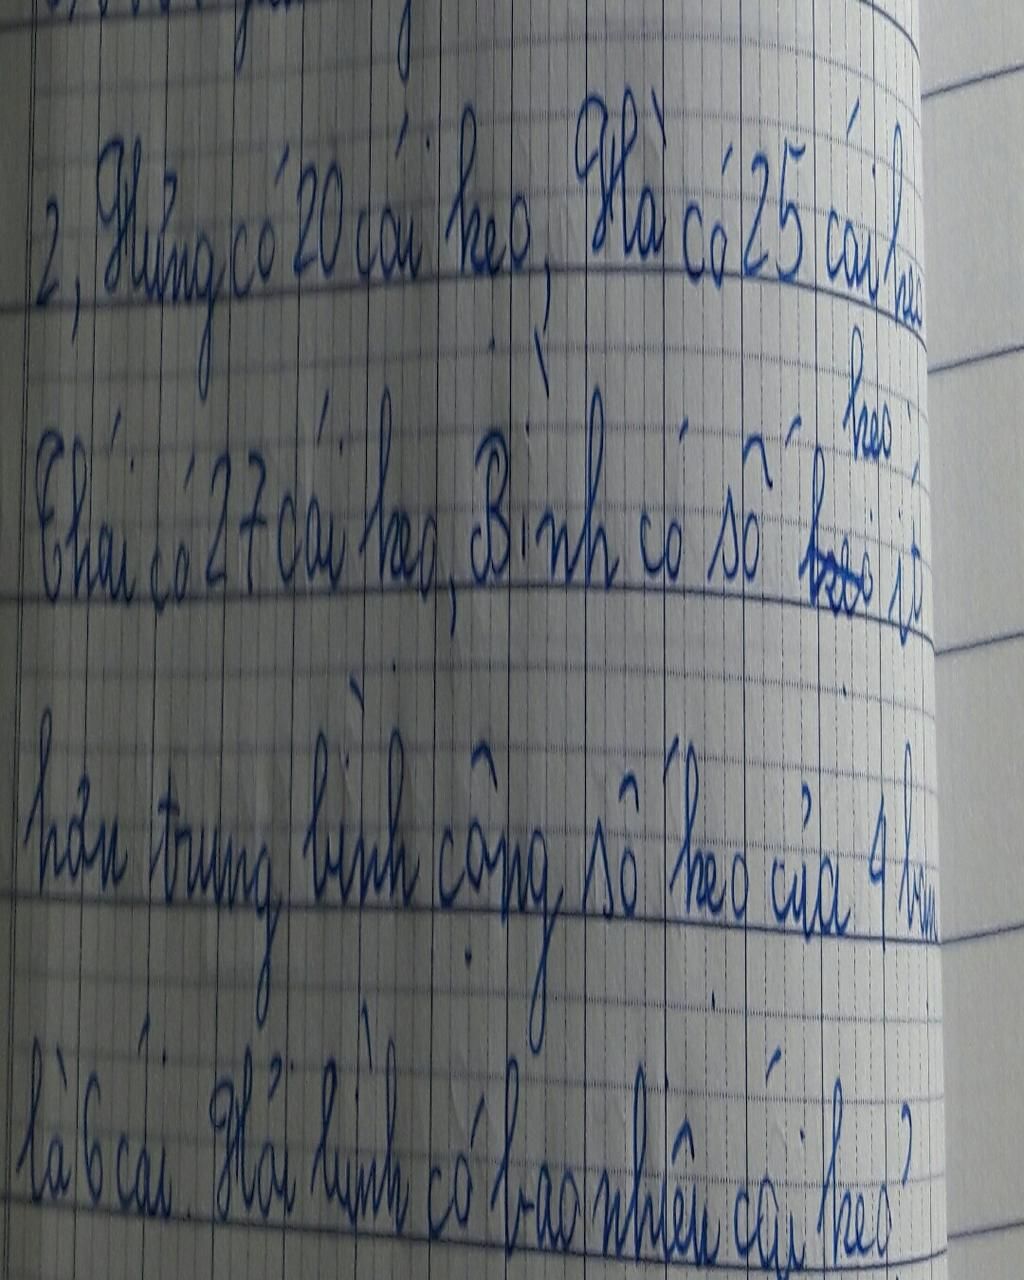 2, Hưng có 20 cái kẹo, Hà có 25 cái kẹo
Thái có 27 cái kẹo, Bình có số kẹo ít
hơn trung bình cộng số kẹo của 4 bạn
là 6 cái. Hỏi bình có bao nhiêu cái kẹo?